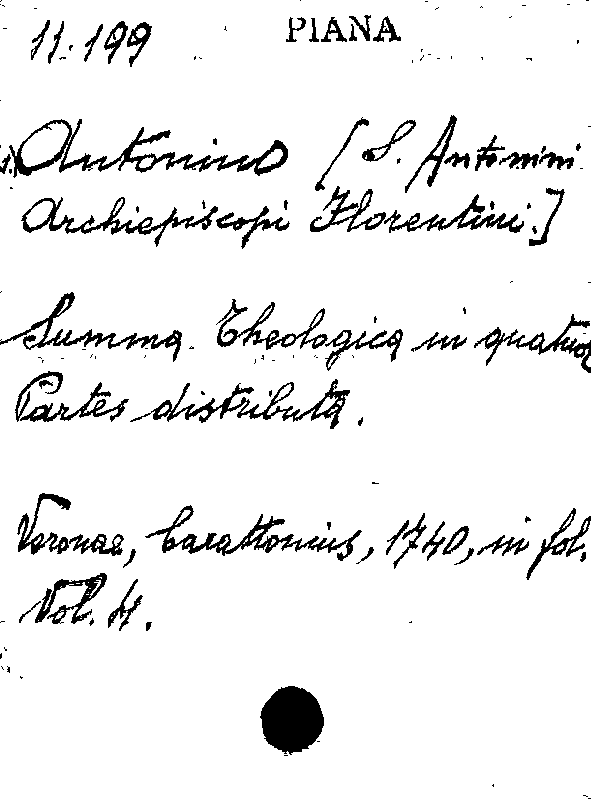 11.199 PIANA
Antonino [S. Antonini
Archiepiscopi Florentini.]
Summa Theologica in quatuor
Partes distributa.
Veronae, Carattonius, 1740, in fol.
Vol. 4.